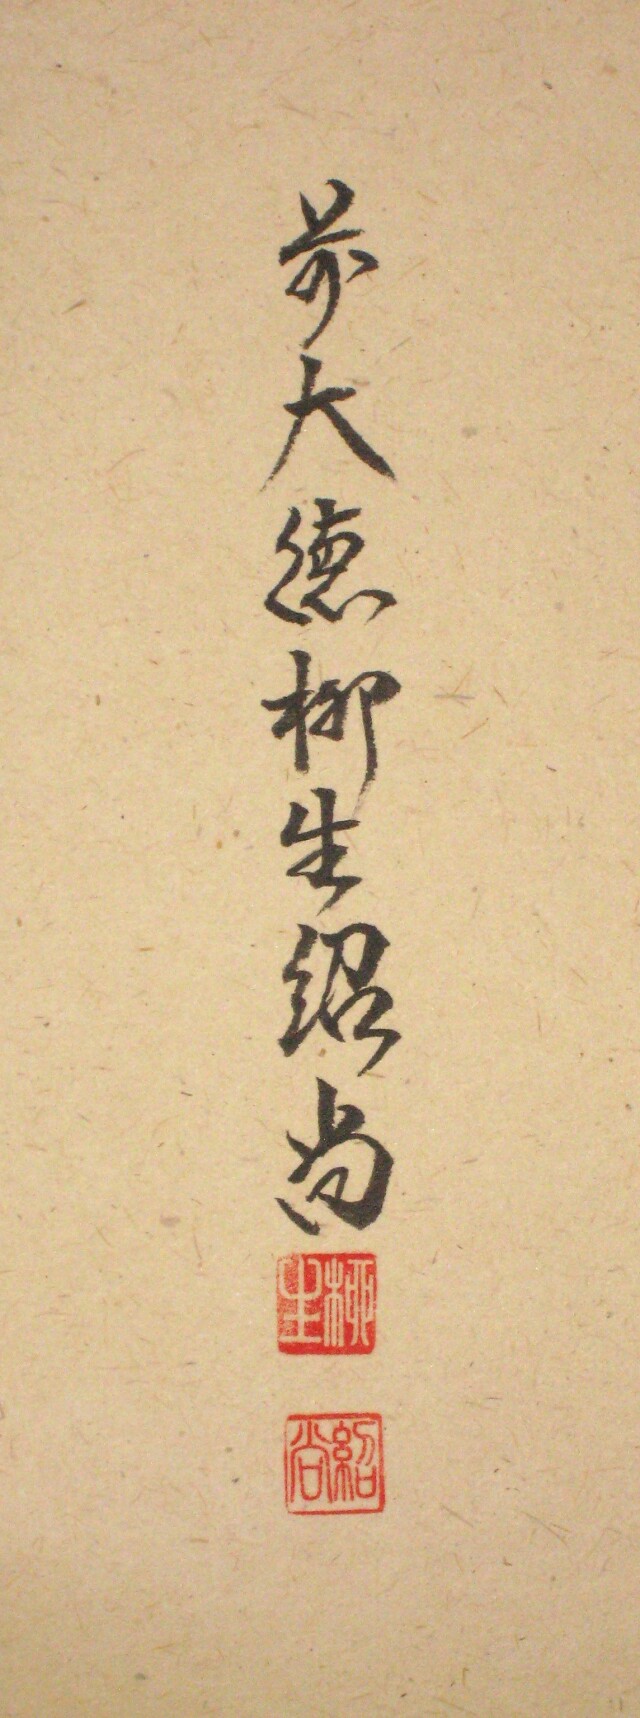 前大德柳生紹尚
柳生
紹尚